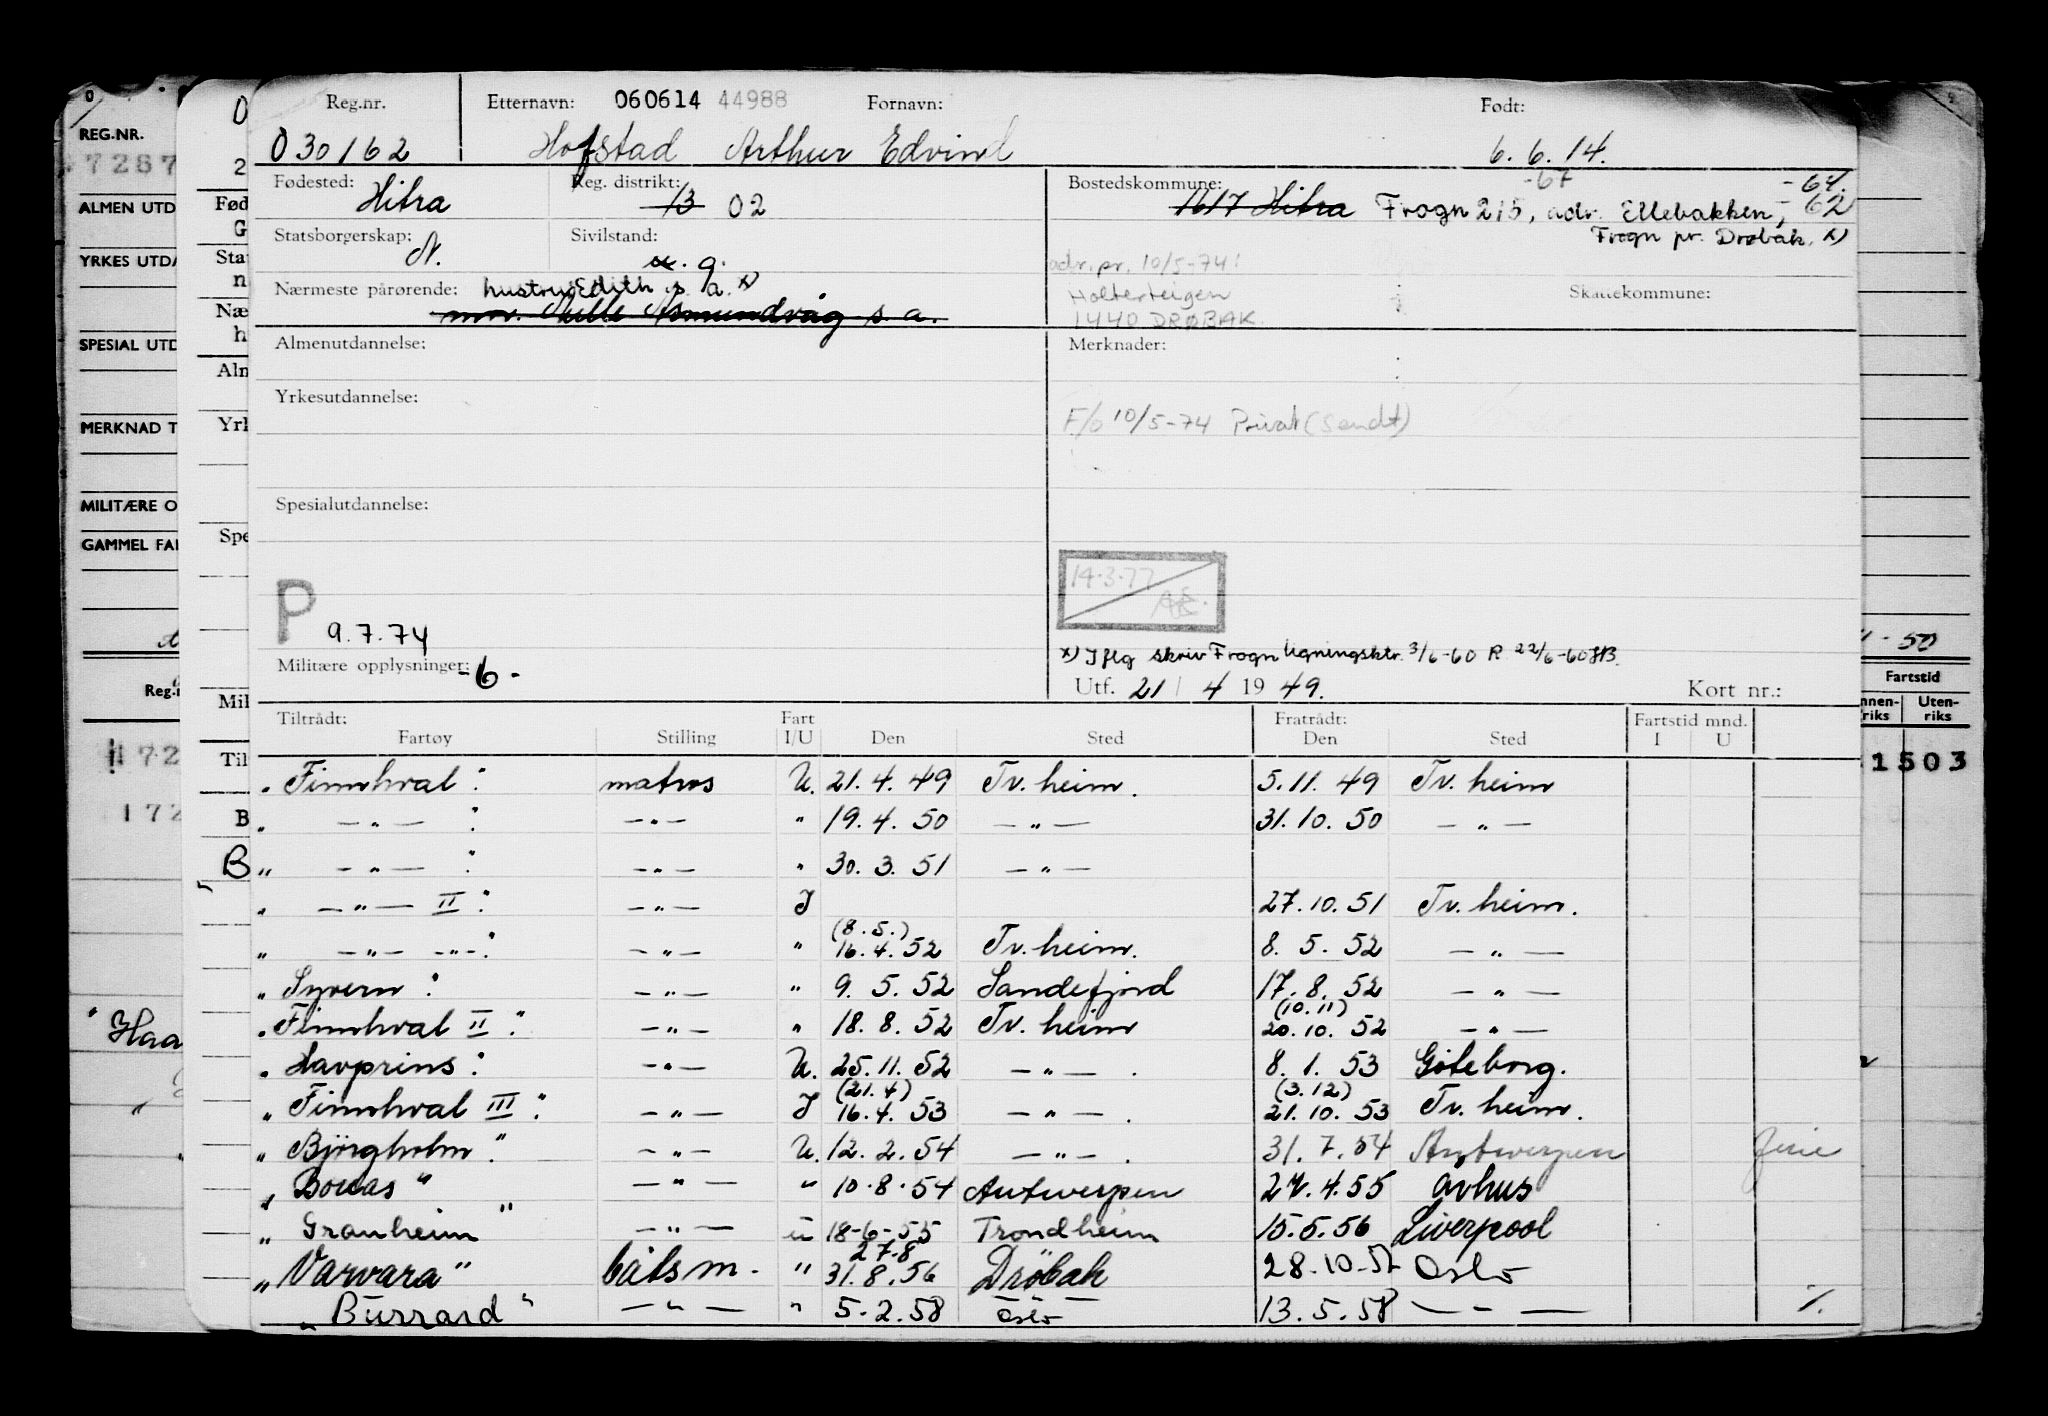 Reg.nr. Etternavn: 060614 44988 Fornavn: Født:
030162 Hofstad Arthur Edvind 6.6.14.
Fødested: Hitra Reg. distrikt: 13 02 Bostedskommune: 1617 Hitra Frogn 215, adr. Ellebakken, -67 -64. -62
Frogn pr. Drøbak. x)
Statsborgerskap: N. Sivilstand: g.
adr. pr. 10/5-74:
Holterteigen
1440 DRØBAK.
Skattekommune:
Nærmeste pårørende: hustru Edith s. a. x)
mor. Asmundvåg s. a.
Almenutdannelse: Merknader:
Yrkesutdannelse:
F/o 10/5-74 Privat (Sendt)
Spesialutdannelse:
14.3.77
P 9.7.74
x) Iflg skriv Frogn ligningsktr. 3/6-60 R 22/6-60 HB.
Militære opplysninger: -6-
Utf. 21/4 1949. Kort nr.:
Tiltrådt: Fart Fratrådt: Fartstid mnd.
Fartøy Stilling I/U Den Sted Den Sted I U
" Finnhval " matros U. 21.4.49 Tr.heim. 5.11.49 Tr.heim
" — " — " — " — " 19.4.50 — " — 31.10.50 — " —
B " — " — " — " — " 30.3.51 — " —
" — " — II " — " — I 27.10.51 Tr.heim.
" — " — — " — " — " — " (8.5.) 16.4.52 Tr.heim. 8.5.52 — " —
" Syvern " — " — " 9.5.52 Sandefjord 17.8.52 — " —
" Finnhval II " — " — " 18.8.52 Tr.heim (10.11) 20.10.52 — " —
" Havprins " — " — U. 25.11.52 — " — 8.1.53 Göteborg.
" Finnhval III " — " — I (21.4) 16.4.53 — " — (3.12) 21.10.53 Tr.heim.
" Bjørgholm " — " — U. 12.2.54 — " — 31.7.54 Antwerpen ferie
" Bonas " — " — " 10.8.54 Antwerpen 27.4.55 Århus
" Granheim " — " — U 18-6-55 Trondheim 15.5.56 Liverpool
" Varvara " båtsm. " 27.8 31.8.56 Drøbak 28.10.57 Oslo
" Burrard " — " — " 5.2.58 Oslo 13.5.58 — " — %
REG.NR.
7287
ALMEN UTD
YRKES UTDA
SPESIAL UTD
MERKNAD T
MILITÆRE O
GAMMEL FAR
Reg.n
172
172
Haa
Fød
G
Stat
n
Næ
h
Aln
Yrl
Spe
Mil
Til
B
- 50
Fartstid
nnenriks Utenriks
1503